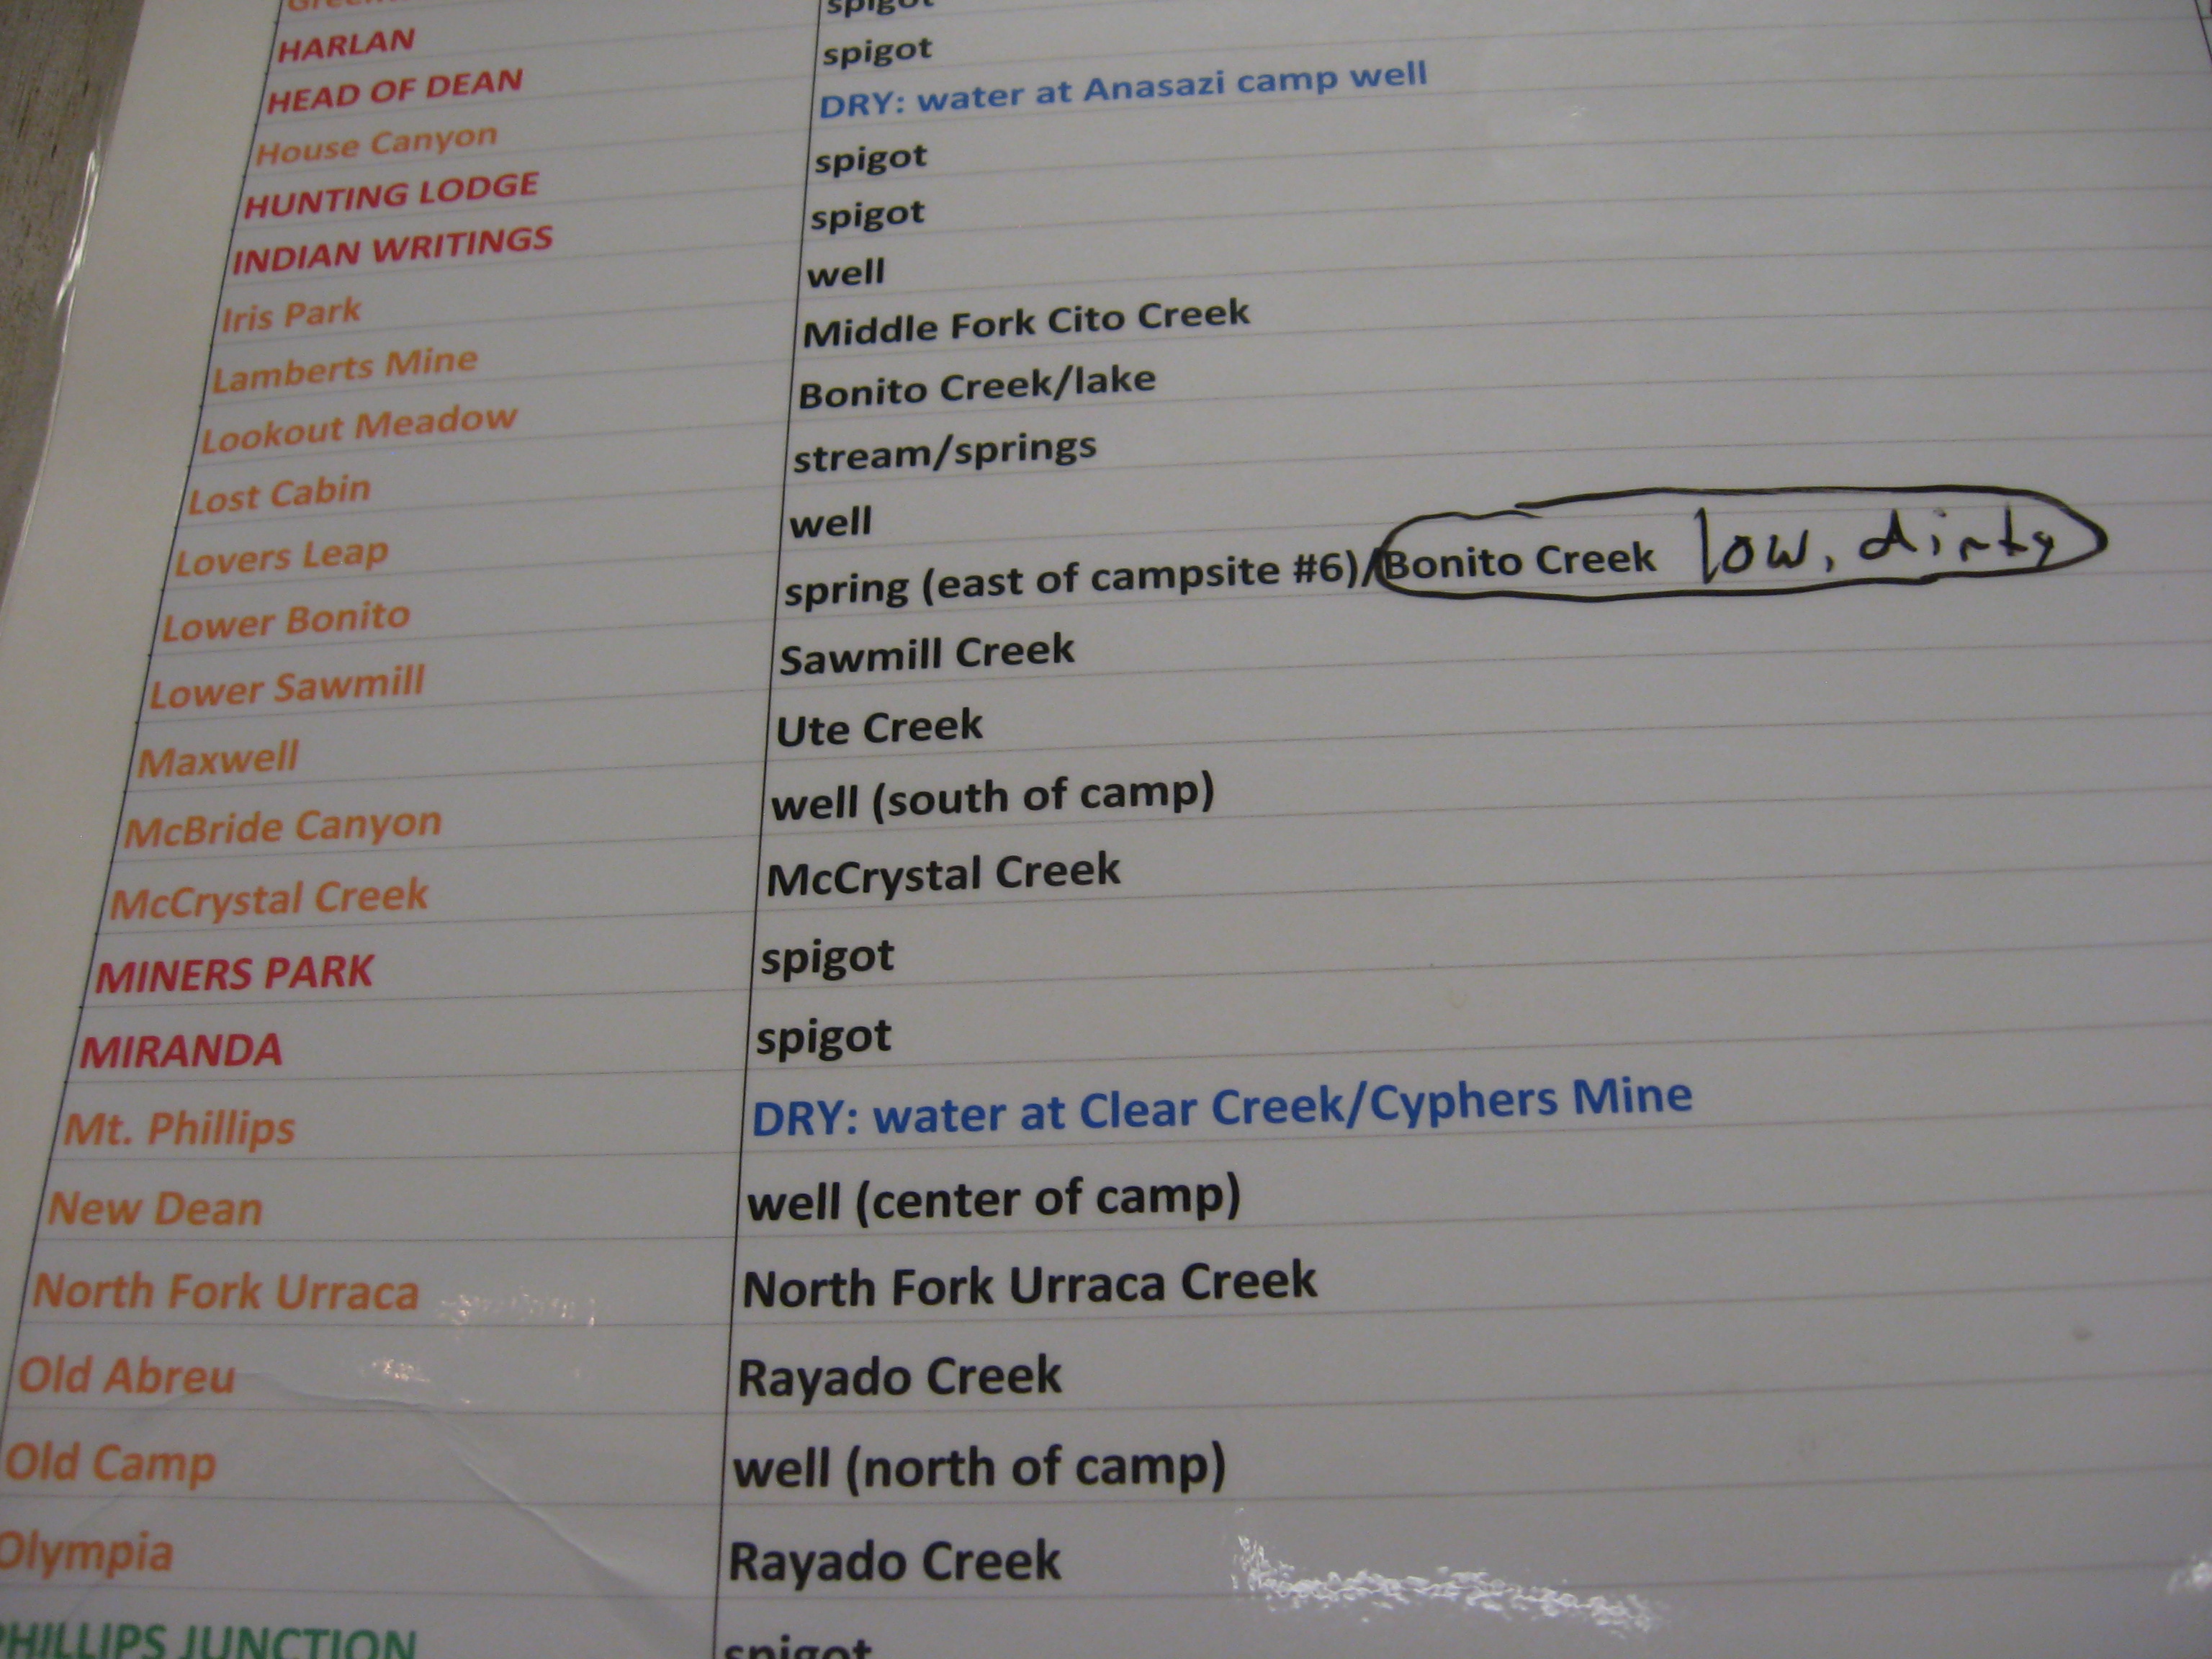 HARLAN spigot
HEAD OF DEAN spigot
House Canyon DRY: water at Anasazi camp well
HUNTING LODGE spigot
INDIAN WRITINGS spigot
Iris Park well
Lamberts Mine Middle Fork Cito Creek
Lookout Meadow Bonito Creek/lake
Lost Cabin stream/springs
Lovers Leap well
Lower Bonito spring (east of campsite #6)/Bonito Creek low, dirty
Lower Sawmill Sawmill Creek
Maxwell Ute Creek
McBride Canyon well (south of camp)
McCrystal Creek McCrystal Creek
MINERS PARK spigot
MIRANDA spigot
Mt. Phillips DRY: water at Clear Creek/Cyphers Mine
New Dean well (center of camp)
North Fork Urraca North Fork Urraca Creek
Old Abreu Rayado Creek
Old Camp well (north of camp)
Olympia Rayado Creek
PHILLIPS JUNCTION spigot